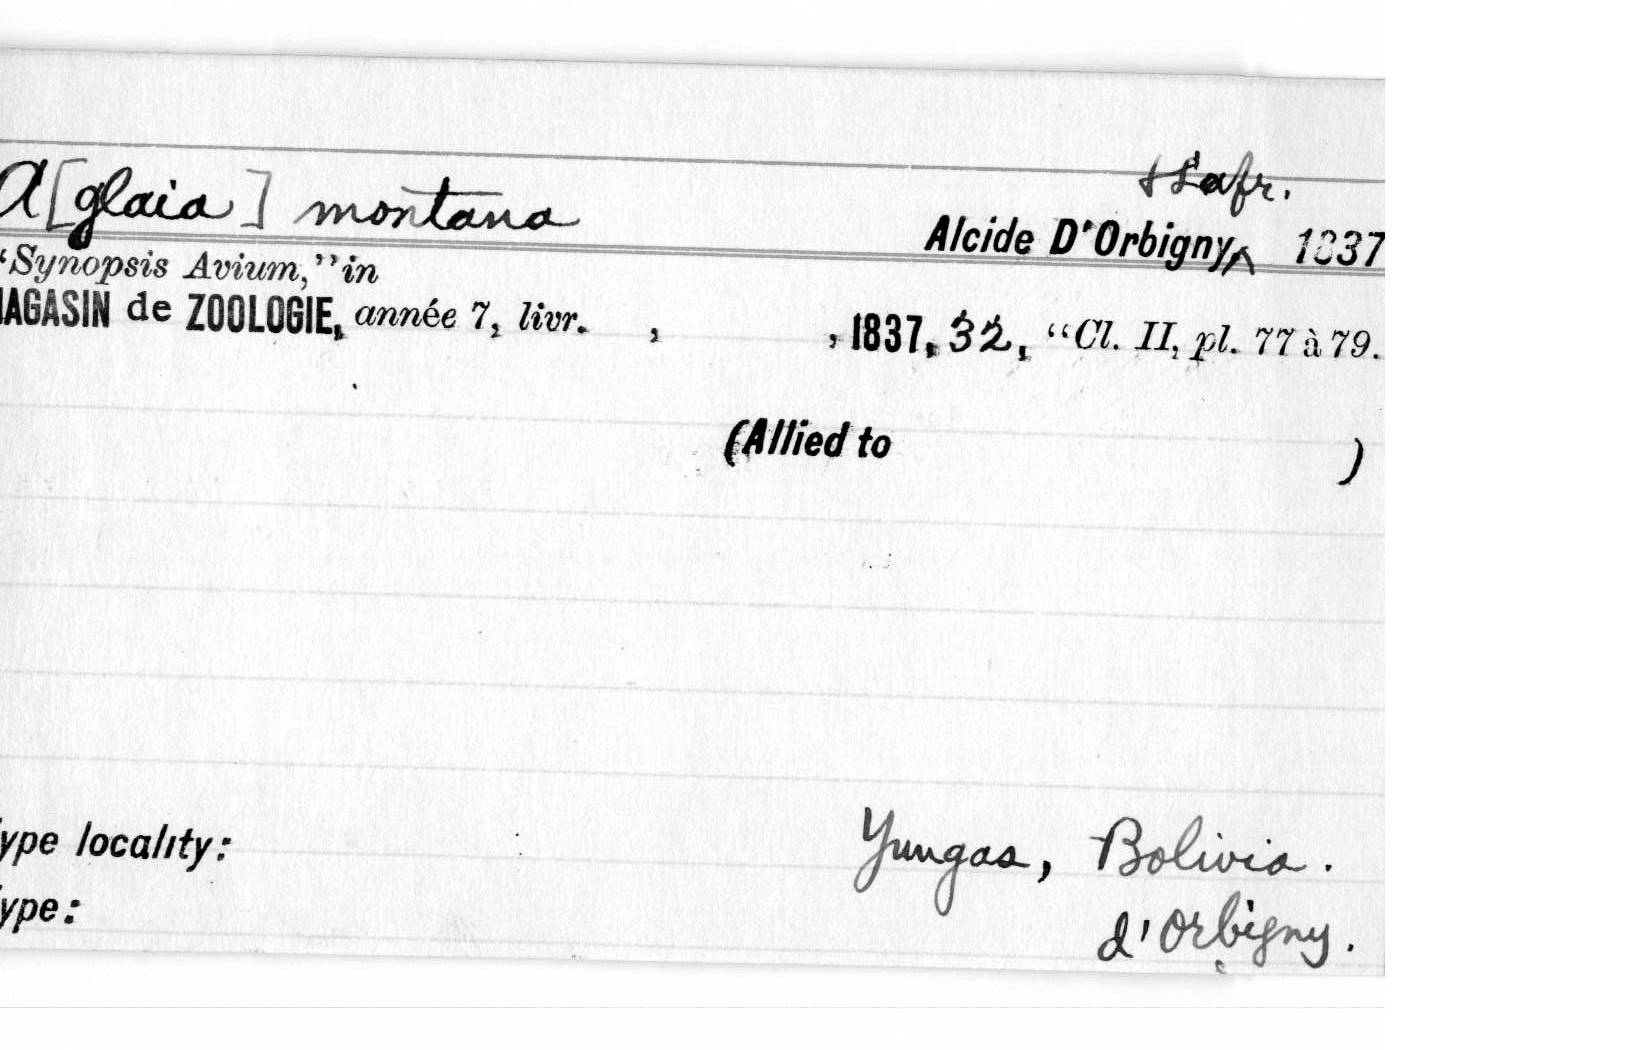 A[glaia] montana
& Lafr.
Alcide D'Orbigny^ 1837
“Synopsis Avium,” in
MAGASIN de ZOOLOGIE, année 7, livr. , , 1837, 32, “Cl. II, pl. 77 à 79.
(Allied to )
ype locality: Yungas, Bolivia.
ype: d'Orbigny.